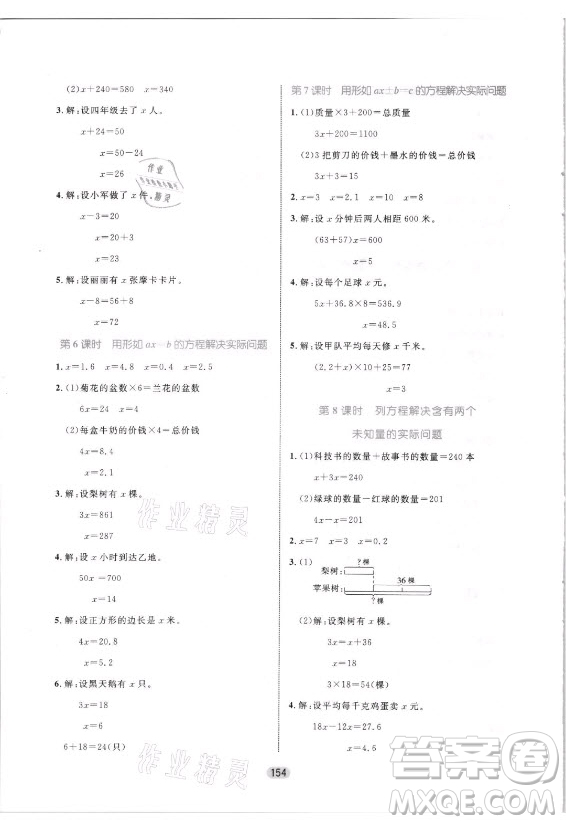 (2)x+240=580　x=340
3. 解:设四年级去了 x 人。
x+24=50
x=50-24
x=26
4. 解:设小军做了 x 件。
x-3=20
x=20+3
x=23
5. 解:设丽丽有 x 张摩卡卡片。
x-8=56+8
x=72
第 6 课时　用形如 ax=b 的方程解决实际问题
1. x=1.6　x=4.8　x=0.4　x=2.5
2. (1)菊花的盆数×6=兰花的盆数
6x=24　x=4
(2)每盒牛奶的价钱×4=总价钱
4x=8.4
x=2.1
3. 解:设梨树有 x 棵。
3x=861
x=287
4. 解:设 x 小时到达乙地。
50x=700
x=14
5. 解:设正方形的边长是 x 米。
4x=20.8
x=5.2
6. 解:设黑天鹅有 x 只。
3x=18
x=6
6+18=24(只)
第 7 课时　用形如 ax±b=c 的方程解决实际问题
1. (1)质量×3+200=总质量
3x+200=1100
(2)3 把剪刀的价钱+墨水的价钱=总价钱
3x+3=15
2. x=3　x=0.8　x=8
3. 解:设 x 分钟后两人相距 600 米。
(63+57)x=600
x=5
4. 解:设每个足球 x 元。
10x+36.8×8=536.9
x=24.25
5. 解:设甲队平均每天修 x 千米。
(2.2+x)×10+25=77
x=3
第 8 课时　列方程解决含有两个
未知量的实际问题
1. (1)科技书的数量+故事书的数量=240 本
x+3x=240
(2)绿球的数量-红球的数量=201
4x-x=201
2. x=7　x=3　x=0.2
3. (1)
? 棵
梨树:
36 棵
苹果树:
? 棵
(2)解:设梨树有 x 棵。
3x=x+36
x=18
3×18=54(棵)
4. 解:设平均每千克鸡蛋卖 x 元。
18x-12x=27.6
x=4.6
154
作业精灵
作业精灵
答案卷
MXQE.COM